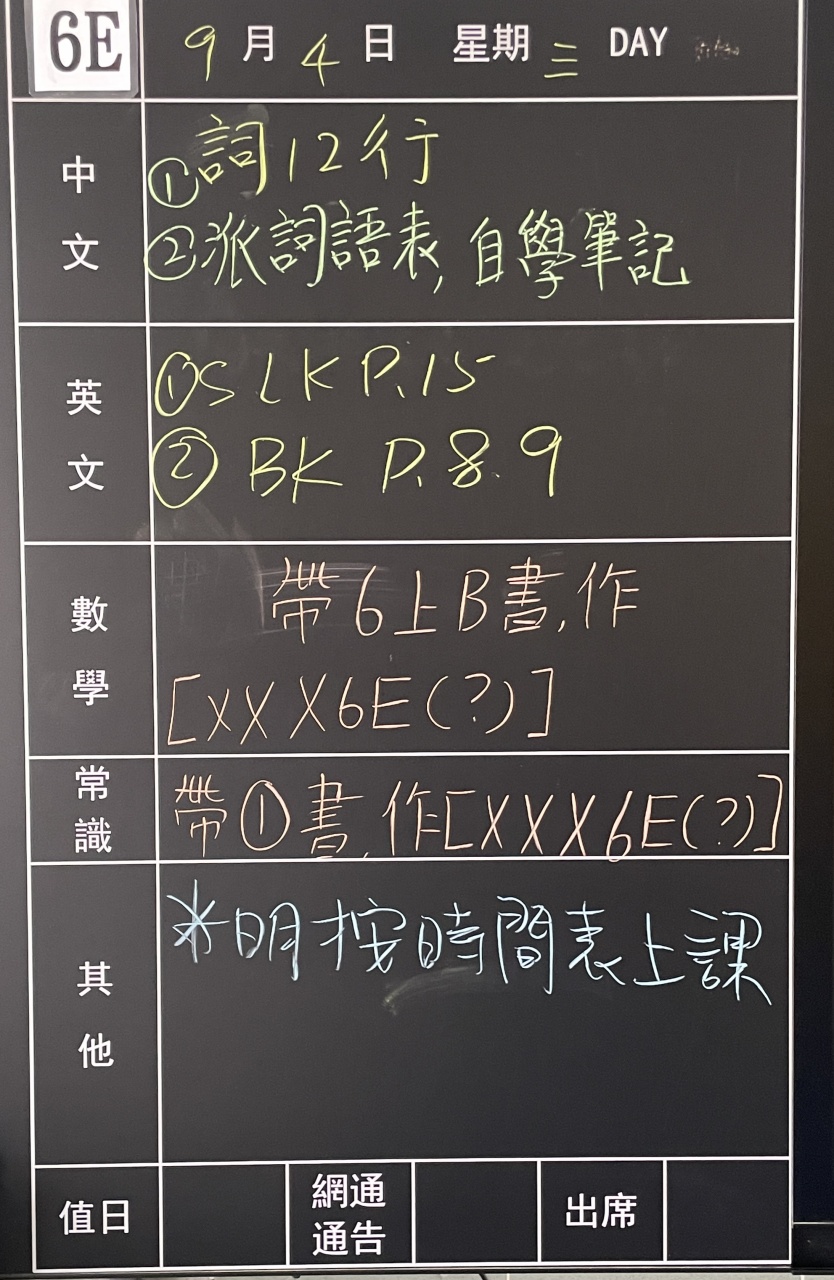 6E 9月4日 星期三 DAY
中文
①詞12行
②派詞語表,自學筆記
英文
①SLK P.15
②BK P.8.9
數學
帶6上B書,作
[XXX6E(?)]
常識
帶①書,作[XXX6E(?)]
其他
*明按時間表上課
值日 網通通告 出席